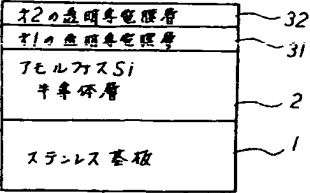 才2の透明導電膜層
32
才1の透明導電膜層
31
アモルファスSi
半導体層
2
ステンレス基板
1